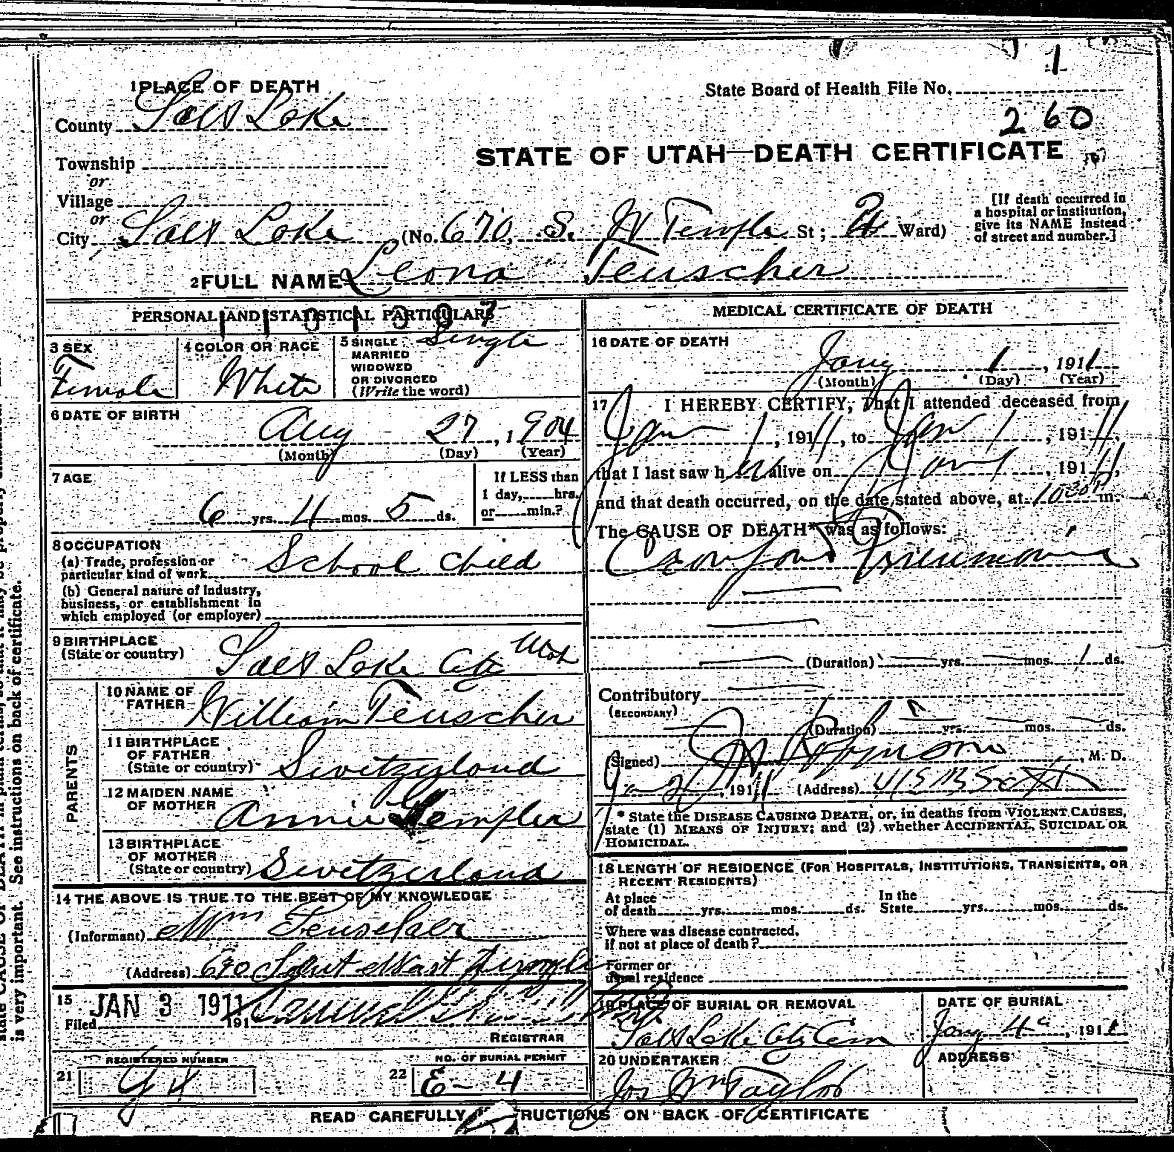 1
1 PLACE OF DEATH
State Board of Health File No.
County Salt Lake
260
STATE OF UTAH—DEATH CERTIFICATE
Township
or
Village
or
City Salt Lake (No. 670, S. W Temple St; 2 Ward)
[If death occurred in
a hospital or institution,
give its NAME instead
of street and number.]
2 FULL NAME Leona Teuscher
PERSONAL AND STATISTICAL PARTICULARS
3 SEX
Female
4 COLOR OR RACE
White
5 SINGLE
MARRIED
WIDOWED
OR DIVORCED
(Write the word)
Single
6 DATE OF BIRTH
Aug 27, 1904
(Month) (Day) (Year)
7 AGE
6 yrs. 4 mos. 5 ds.
If LESS than
1 day, hrs.
or min.?
8 OCCUPATION
(a) Trade, profession or
particular kind of work
School Child
(b) General nature of industry,
business, or establishment in
which employed (or employer)
9 BIRTHPLACE
(State or country)
Salt Lake City Utah
PARENTS
10 NAME OF
FATHER
William Teuscher
11 BIRTHPLACE
OF FATHER
(State or country)
Switzerland
12 MAIDEN NAME
OF MOTHER
Annie Kempler
13 BIRTHPLACE
OF MOTHER
(State or country)
Switzerland
14 THE ABOVE IS TRUE TO THE BEST OF MY KNOWLEDGE
(Informant) Wm Teuscher
(Address) 670 South West Temple
15
Filed JAN 3 1911 191
REGISTRAR
REGISTERED NUMBER
21
NO. OF BURIAL PERMIT
22 E-4
MEDICAL CERTIFICATE OF DEATH
16 DATE OF DEATH
Jany 1, 1911
(Month) (Day) (Year)
17 I HEREBY CERTIFY, That I attended deceased from
Jan 1, 1911, to Jan 1, 1911,
that I last saw her alive on Jany 1, 1911,
and that death occurred, on the date stated above, at 1030 m.
The CAUSE OF DEATH* was as follows:
Pneumonia
(Duration) yrs. mos. 1 ds.
Contributory
(SECONDARY)
(Duration) yrs. mos. ds.
(Signed) M. D.
Jan 2, 1911 (Address)
* State the DISEASE CAUSING DEATH, or, in deaths from VIOLENT CAUSES,
state (1) MEANS OF INJURY; and (2) whether ACCIDENTAL, SUICIDAL OR
HOMICIDAL.
18 LENGTH OF RESIDENCE (FOR HOSPITALS, INSTITUTIONS, TRANSIENTS, OR
RECENT RESIDENTS)
At place
of death yrs. mos. ds.
In the
State yrs. mos. ds.
Where was disease contracted,
if not at place of death?
Former or
usual residence
19 PLACE OF BURIAL OR REMOVAL
Salt Lake City Cem
DATE OF BURIAL
Jany 4, 1911
20 UNDERTAKER
Jos Wm Taylor
ADDRESS
READ CAREFULLY INSTRUCTIONS ON BACK OF CERTIFICATE
is very important. See instructions on back of certificate.